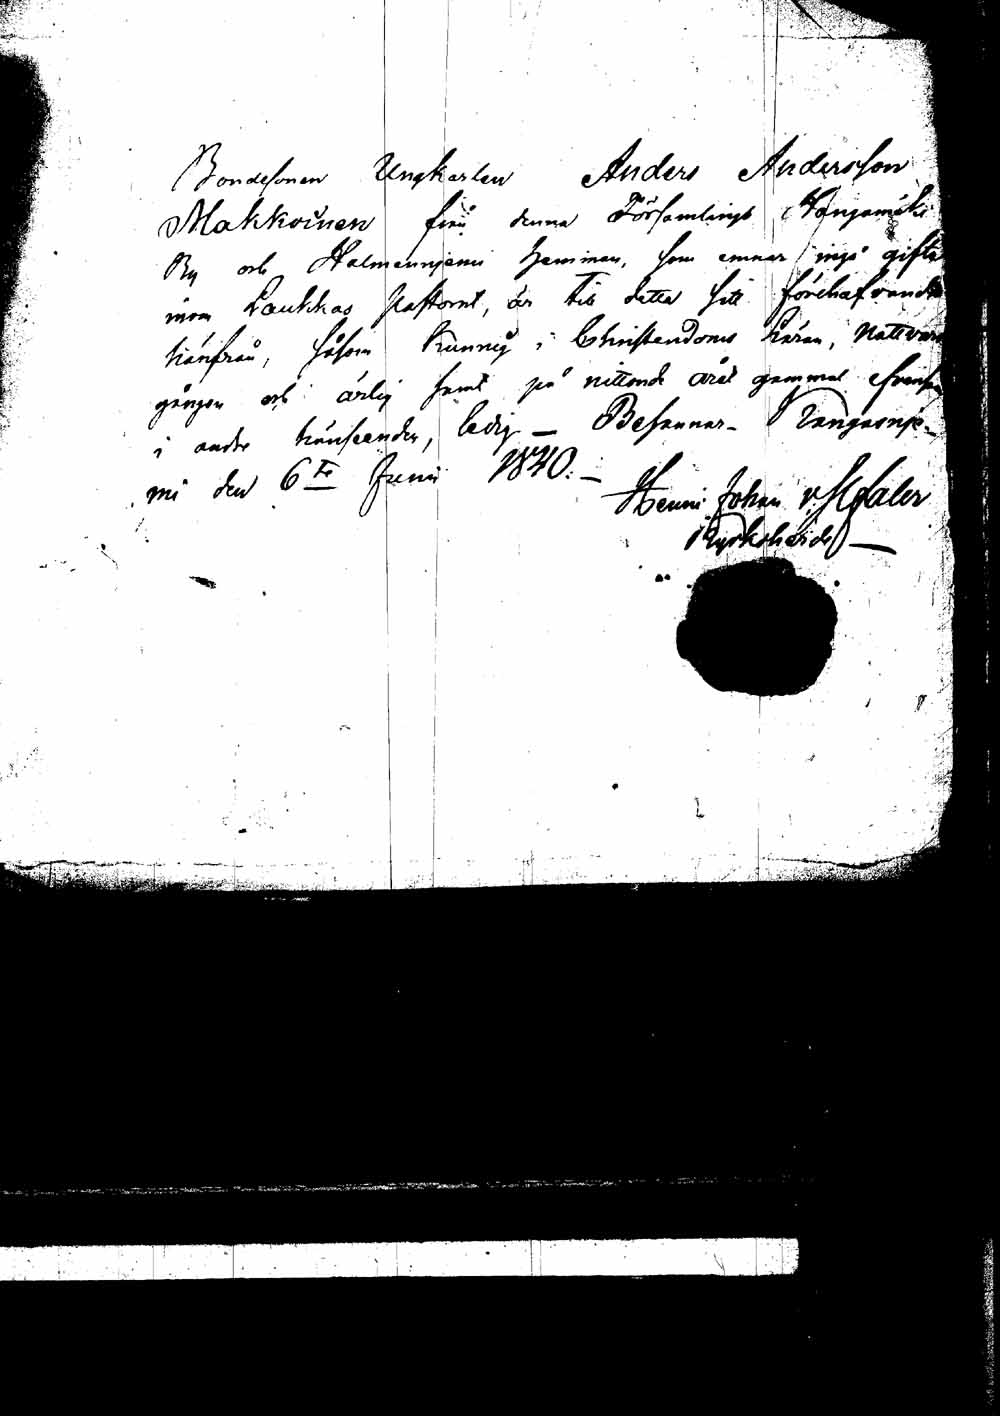 Bondesonen Ungkarlen Anders Andersson
Makkoinen från denna Församlings Kangasmäki
By och hemman, som ämnar ingå gifte
inom Laukkas Pastorat, är till detta sitt förehafvande
härifrån, såsom kunnig i Christendoms läran, Nattvard
gången och ärlig samt på nittonde året gammal
i andra hänseenden, ledig — Besannar Kangasnje-
mi den 6te Junii 1840. —
Johan
Kyrkoherde —